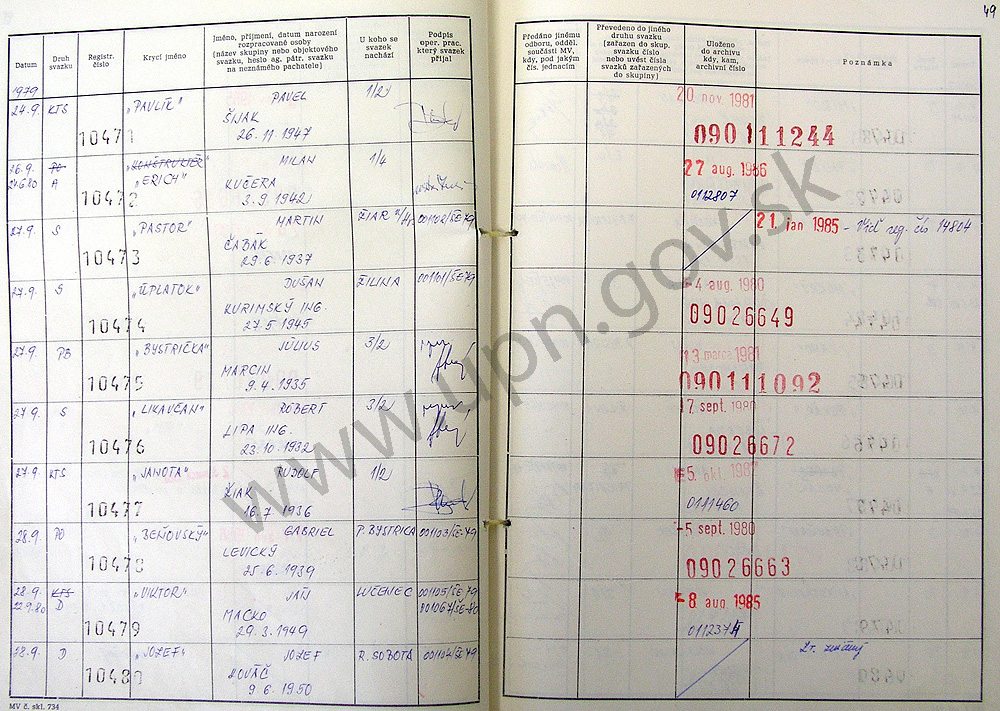 49
Datum
Druh svazku
Registr. číslo
Krycí jméno
Jméno, příjmení, datum narození
rozpracované osoby
(název skupiny nebo objektového
svazku, heslo ag. pátr. svazku
na neznámého pachatele)
U koho se
svazek
nachází
Podpis
oper. prac.
který svazek
přijal
Předáno jinému
odboru, odděl.
součásti MV,
kdy, pod jakým
čís. jednacím
Převedeno do jiného
druhu svazku
(zařazen do skup.
svazku číslo
nebo uvést čísla
svazků zařazených
do skupiny)
Uloženo
do archivu
kdy, kam,
archivní číslo
Poznámka
1979
24.9. KTS 10471 „PAVLÍK" PAVEL 1/2
ŠIJAK
26.11.1947
20. nov. 1981
090111244
26.9. PO 10472 MILAN 1/4
24.6.80 A „ERICH" KUČERA
3.9.1942
27 aug. 1986
0112807
27.9. S 10473 „PASTOR" MARTIN ŽIAR 001102/ŠE-79
ČABÁK
29.6.1937
21. jan 1985 - Viď reg. čís 14804
27.9. S 10474 „ÚPLATOK" DUŠAN ŽILINA 001101/ŠE-79
KURIMSKÝ ING.
27.5.1945
-4 aug. 1980
09026649
27.9. PO 10475 „BYSTRIČKA" JÚLIUS 3/2
MARCIN
9.4.1935
13. marca 1981
090111092
27.9. S 10476 „LIKAVČAN" RÓBERT 3/2
LIPA ING.
23.10.1932
17. sept. 1980
09026672
27.9. KTS 10477 „JANOTA" RUDOLF 1/2
ŽIAK
16.7.1936
-5. okt.
0111460
28.9. PO 10478 „BEŇOVSKÝ" GABRIEL P. BYSTRICA 001103/ŠE-79
LEVICKÝ
25.6.1939
-5 sept. 1980
09026663
28.9. KTS 10479 „VIKTOR" JÁN LUČENEC 001105/ŠE-79
22.9.80 D MACKO 001067/ŠE-80
29.3.1949
-8. aug 1985
28.9. D 10480 „JOZEF" JOZEF R. SOBOTA 001104/ŠE-79
KOVÁČ
9.6.1950
MV č. skl. 734
www.upn.gov.sk